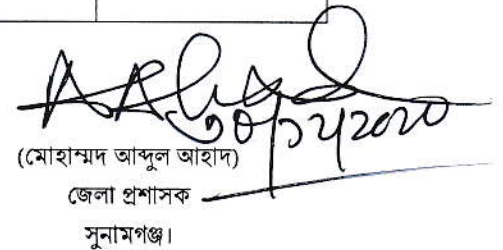 (মোহাম্মদ আব্দুল আহাদ)
জেলা প্রশাসক
সুনামগঞ্জ।